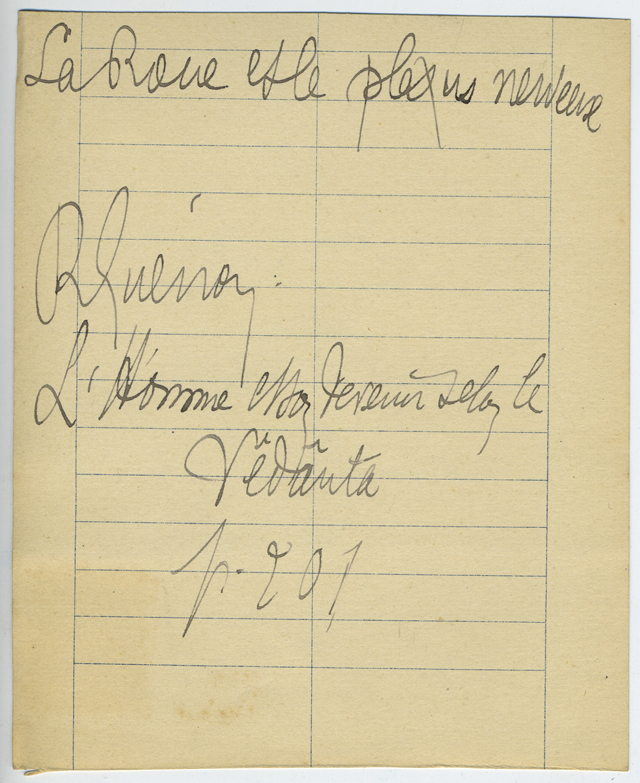 La Roue et le plexus nerveux
R Guénon.
L'Homme et son Devenir selon le
Vêdânta
p. 201